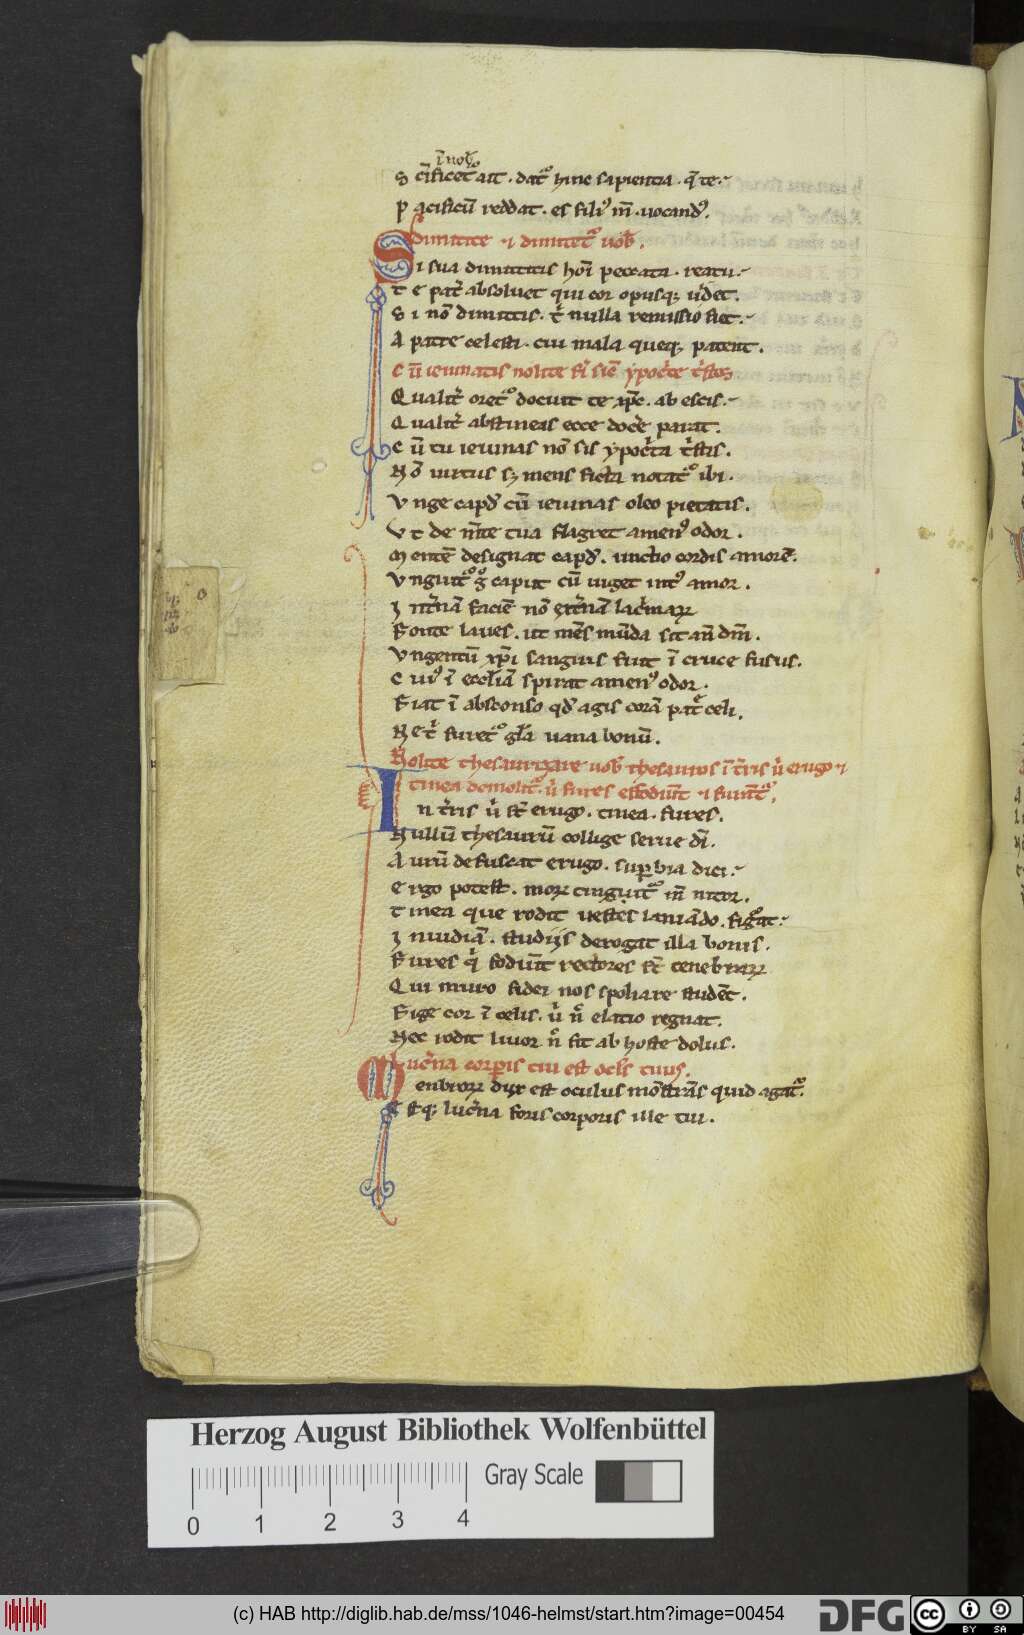 ī nob̄
S cīficet᷑ ait. dat᷑ hinc sapientia. q̄ te.
P acificū reddat. es filiꝰ m̄. uocandꝰ.
Dimittite ⁊ dimittet᷑ uob̄.
Si sua dimittitis hoī peccata. reatu.
T e pat̄ absoluet qui cor opusqꝫ uidet.
S i nō dimittis. t̄ nulla remissio fiet.
A patre celesti. cui mala queqꝫ patent.
C ū ieiunatis nolite fi̓ sic̄ ypoc̄te t̓stes
Q ualit̓ oret᷑ docuit te xp̄c. ab escis.
Q ualit̓ abstineas ecce doc̓e parat.
C ū tu ieiunas nō sis ypoc̓ta t̓stis.
N ō uirtus sꝫ mens ficta notat᷑ ibi.
V nge capđ cū ieiunas oleo pietatis.
V t de m̄te tua flagret amenꝰ odor.
M entē designat capđ. unctio cordis amorē.
V nguit᷑ g̊ capiut cū uiget intꝰ amor.
I nt̓nā faciē nō ext̓nā lac̓maꝝ
F onte laues. ut mēs mūda sit an̄ dm̄.
V ngentū xp̄i sanguis fuit ī cruce fusus.
C uiꝰ ī eccl̓iā spirat amenꝰ odor.
F iat ī absconso qđ agis corā pat̓ celi.
N e t̓ furet᷑ gl̓a uana bonū.
Nolite thesaurizare uob̄ thesauros ī t̓ris u̓ erugo ⁊
tinea demolit᷑. u̓ fures effodiūt ⁊ furāt᷑.
In t̓ris u̓ st̄ erugo. tinea. fures.
N ullū thesaurū collige serue dī.
A urū defuscat erugo. suꝑbia dici.
E rgo potest. moꝝ tinguit᷑ in̄ nitor.
T inea que rodit uestes laniādo. figᷓat.
I nuidiā. studiis derogat illa bonis.
F ures q̓ fodiūt rectores st̄ tenebraꝝ
Q ui muro fidei nos spoliare studēt.
F ige cor ī celis. u̓ n̄ elatio regnat.
N ec rodit liuor n̄ fit ab hoste dolus.
Luc̓na corꝑis tui est oc̄l̓s tuus.
Menbroꝝ dux est oculus mōstrās quid agat᷑.
E stqꝫ luc̓na foris corporis ille tui.
Herzog August Bibliothek Wolfenbüttel
Gray Scale
0 1 2 3 4
(c) HAB http://diglib.hab.de/mss/1046-helmst/start.htm?image=00454
DFG
cc BY SA